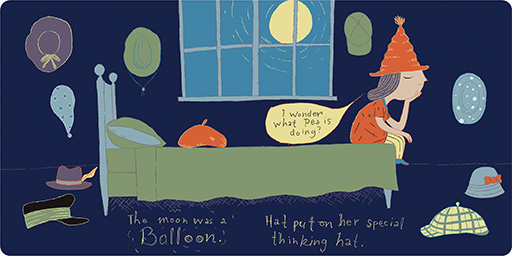 I wonder
what Pea is
doing?
The moon was a
Balloon.
Hat put on her special
thinking hat.